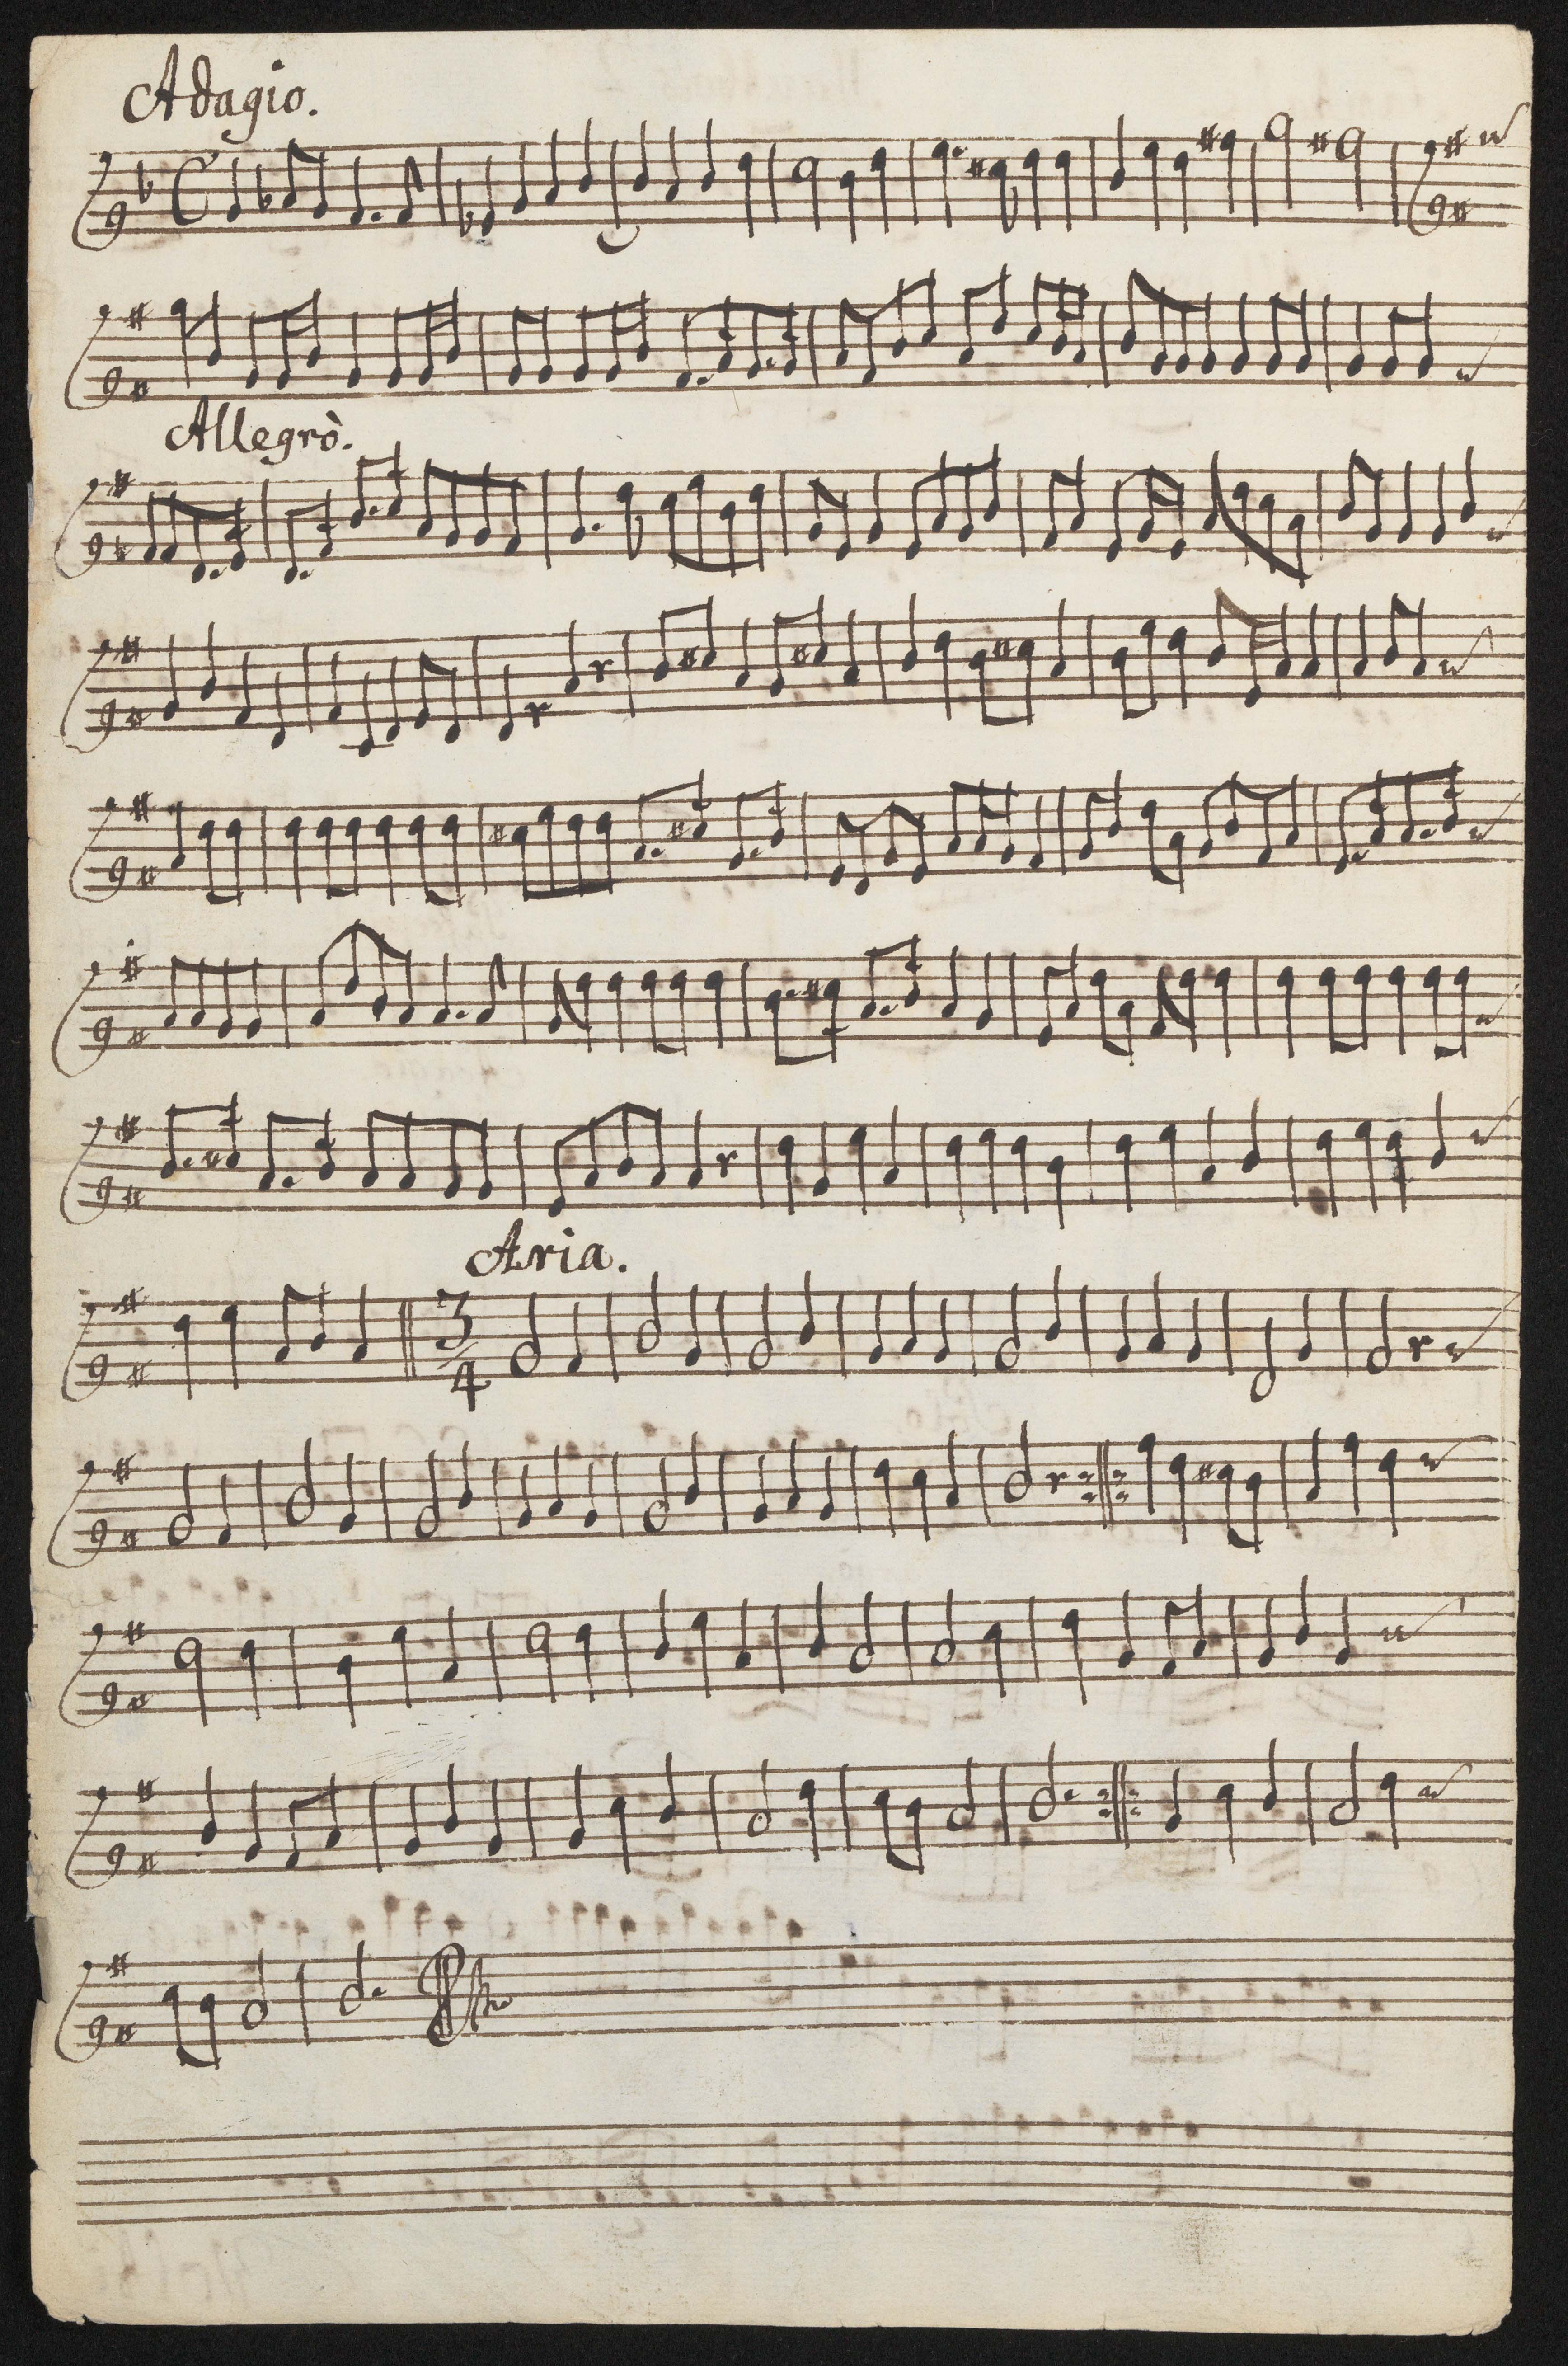 Adagio.
Allegrò.
Aria.
3
4